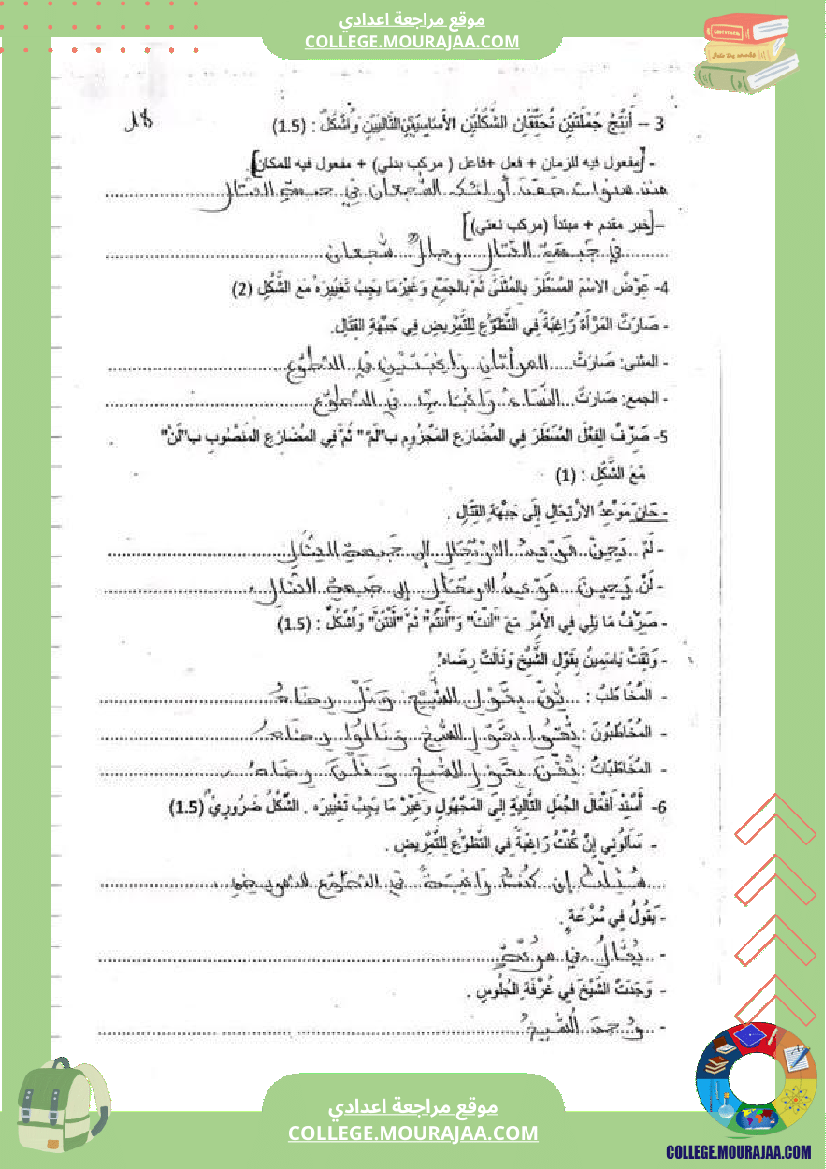 موقع مراجعة اعدادي
COLLEGE.MOURAJAA.COM
18
3 – أُنْتِجُ جُمْلَتَيْنِ تُحَقِّقَانِ الشَّكْلَيْنِ الأَسَاسِيَّيْنِ التَّالِيَيْنِ وَأَشْكُلُ : (1.5)
- [مفعول فيه للزمان + فعل +فاعل ( مركب بدلي) + مفعول فيه للمكان].
منذ سنوات أولئك الشجعان في جبهة القتال
–[خبر مقدم + مبتدأ (مركب نعتي)]
في جَبهة القتال رجالٌ شجعان
4- عَوِّضْ الاسْمَ المُسَطَّرَ بِالمُثَنَّى ثُمَّ بِالجَمْعِ وَغَيِّرْ مَا يَجِبُ تَغْيِيرَهُ مَعَ الشَّكْلِ (2)
- صَارَتْ المَرْأَةُ رَاغِبَةً فِي التَّطَوُّعِ لِلتَّمْرِيضِ فِي جَبْهَةِ القِتَالِ.
- المثنى: صَارَتْ المرأتان رَاغِبَتَيْنِ في التطوّع
- الجمع: صَارَتْ النّساءُ رَاغِبَاتٍ في التطوّع
5- صَرِّفْ الفِعْلَ المُسَطَّرَ فِي المُضَارِعِ المَجْزُومِ بِ"لَمْ" ثُمَّ فِي المُضَارِعِ المَنْصُوبِ بِ"لَنْ"
مَعَ الشَّكْلِ : (1)
- حَانَ مَوْعِدُ الارْتِحَالِ إِلَى جَبْهَةِ القِتَالِ .
- لَمْ يَحِنْ مَوْعِدُ الارتحال إلى جبهة القتال
- لَنْ يَحِينَ مَوْعِدُ الارتحال إلى جبهة القتال.
- صَرِّفْ مَا يَلِي فِي الأَمْرِ مَعَ "أَنْتَ" وَ"أَنْتُمْ" ثُمَّ "أَنْتُنَّ" وَأَشْكُلُ : (1.5)
- وَثِقَتْ يَاسَمِينُ بِقَوْلِ الشَّيْخِ وَنَالَتْ رِضَاهُ.
- المُخَاطَبُ : ثِقْ بِقَوْلِ الشَّيْخِ وَنَلْ رِضَاهُ
- المُخَاطَبُونَ : ثِقُوا بِقَوْلِ الشَّيْخِ وَنَالُوا رِضَاهُ
- المُخَاطَبَاتُ : ثِقْنَ بِقَوْلِ الشَّيْخِ وَنَلْنَ رِضَاهُ.
6- أُسْنِدُ أَفْعَالَ الجُمَلِ التَّالِيَةِ إِلَى المَجْهُولِ وَغَيِّرْ مَا يَجِبُ تَغْيِيرَه . الشَّكْلُ ضَرُورِيٌّ (1.5)
- سَأَلُونِي إِنْ كُنْتُ رَاغِبَةً فِي التَّطَوُّعِ لِلتَّمْرِيضِ .
سُئِلْتُ إن كنتُ راغبةً في التطوّع للتمريض.
- يَقُولُ فِي سُرْعَةٍ .
- يُقَالُ في سُرْعَةٍ
- وَجَدَتْ الشَّيْخَ فِي غُرْفَةِ الجُلُوسِ .
- وُجِدَ الشَّيْخُ
موقع مراجعة اعدادي
COLLEGE.MOURAJAA.COM
COLLEGE.MOURAJAA.COM